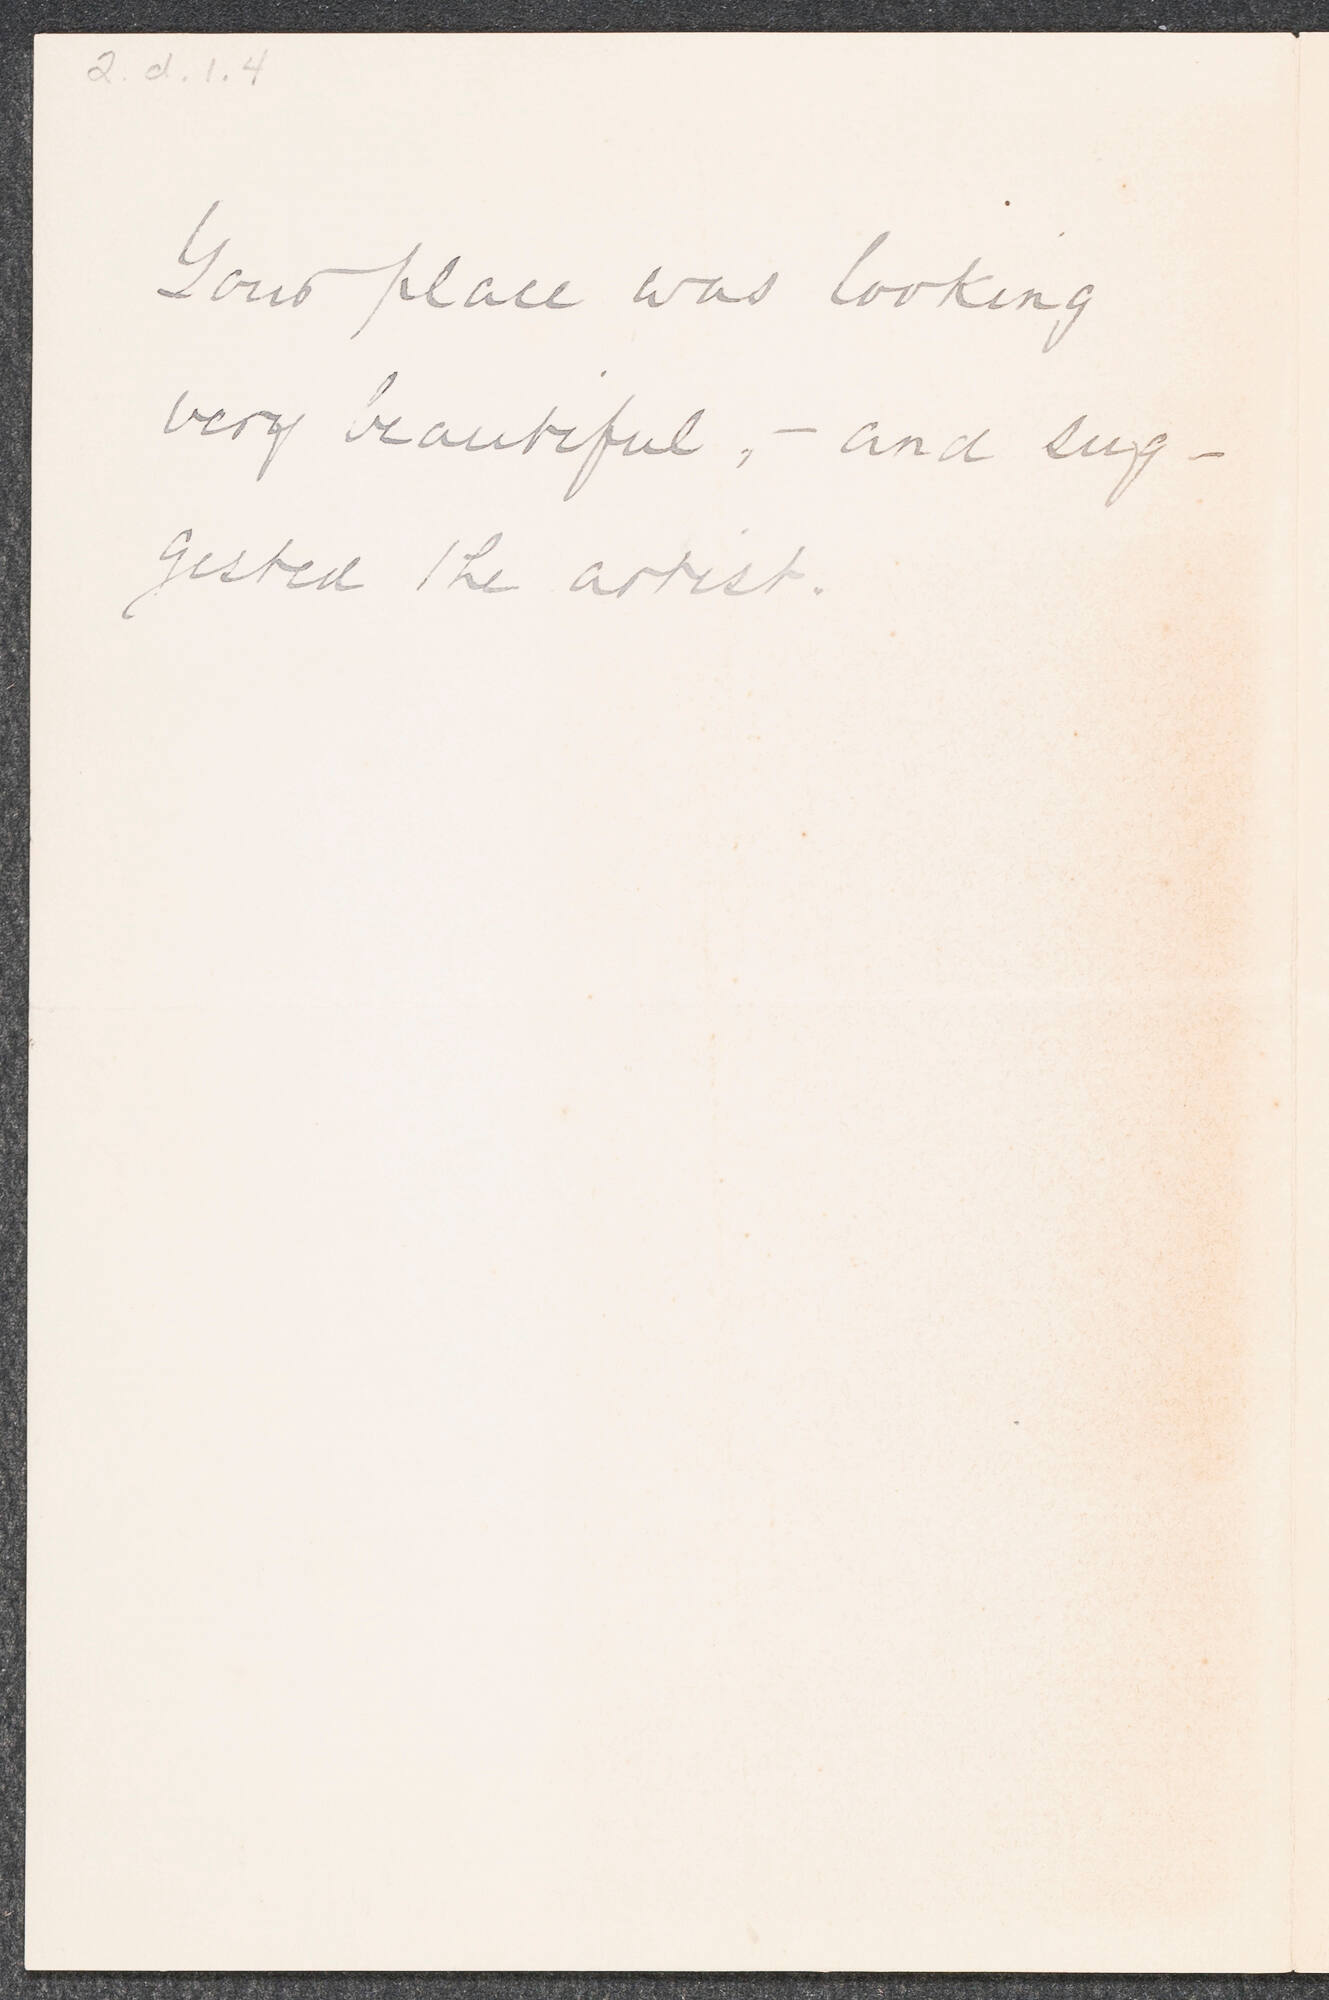 2.d.1.4
Your place was looking
very beautiful, - and sug-
gested the artist.